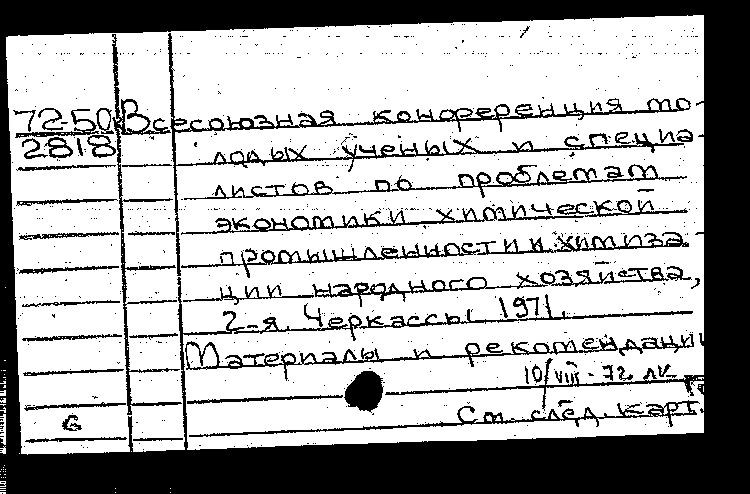 72-50 Всесоюзная конференция мо-
2818 лодых ученых и специа-
листов по проблемам
экономики химической
промышленности и химиза-
ции народного хозяйства,
2-я. Черкассы 1971.
Материалы и рекомендации
10/VIII-72. лк.
См. след. карт.
6